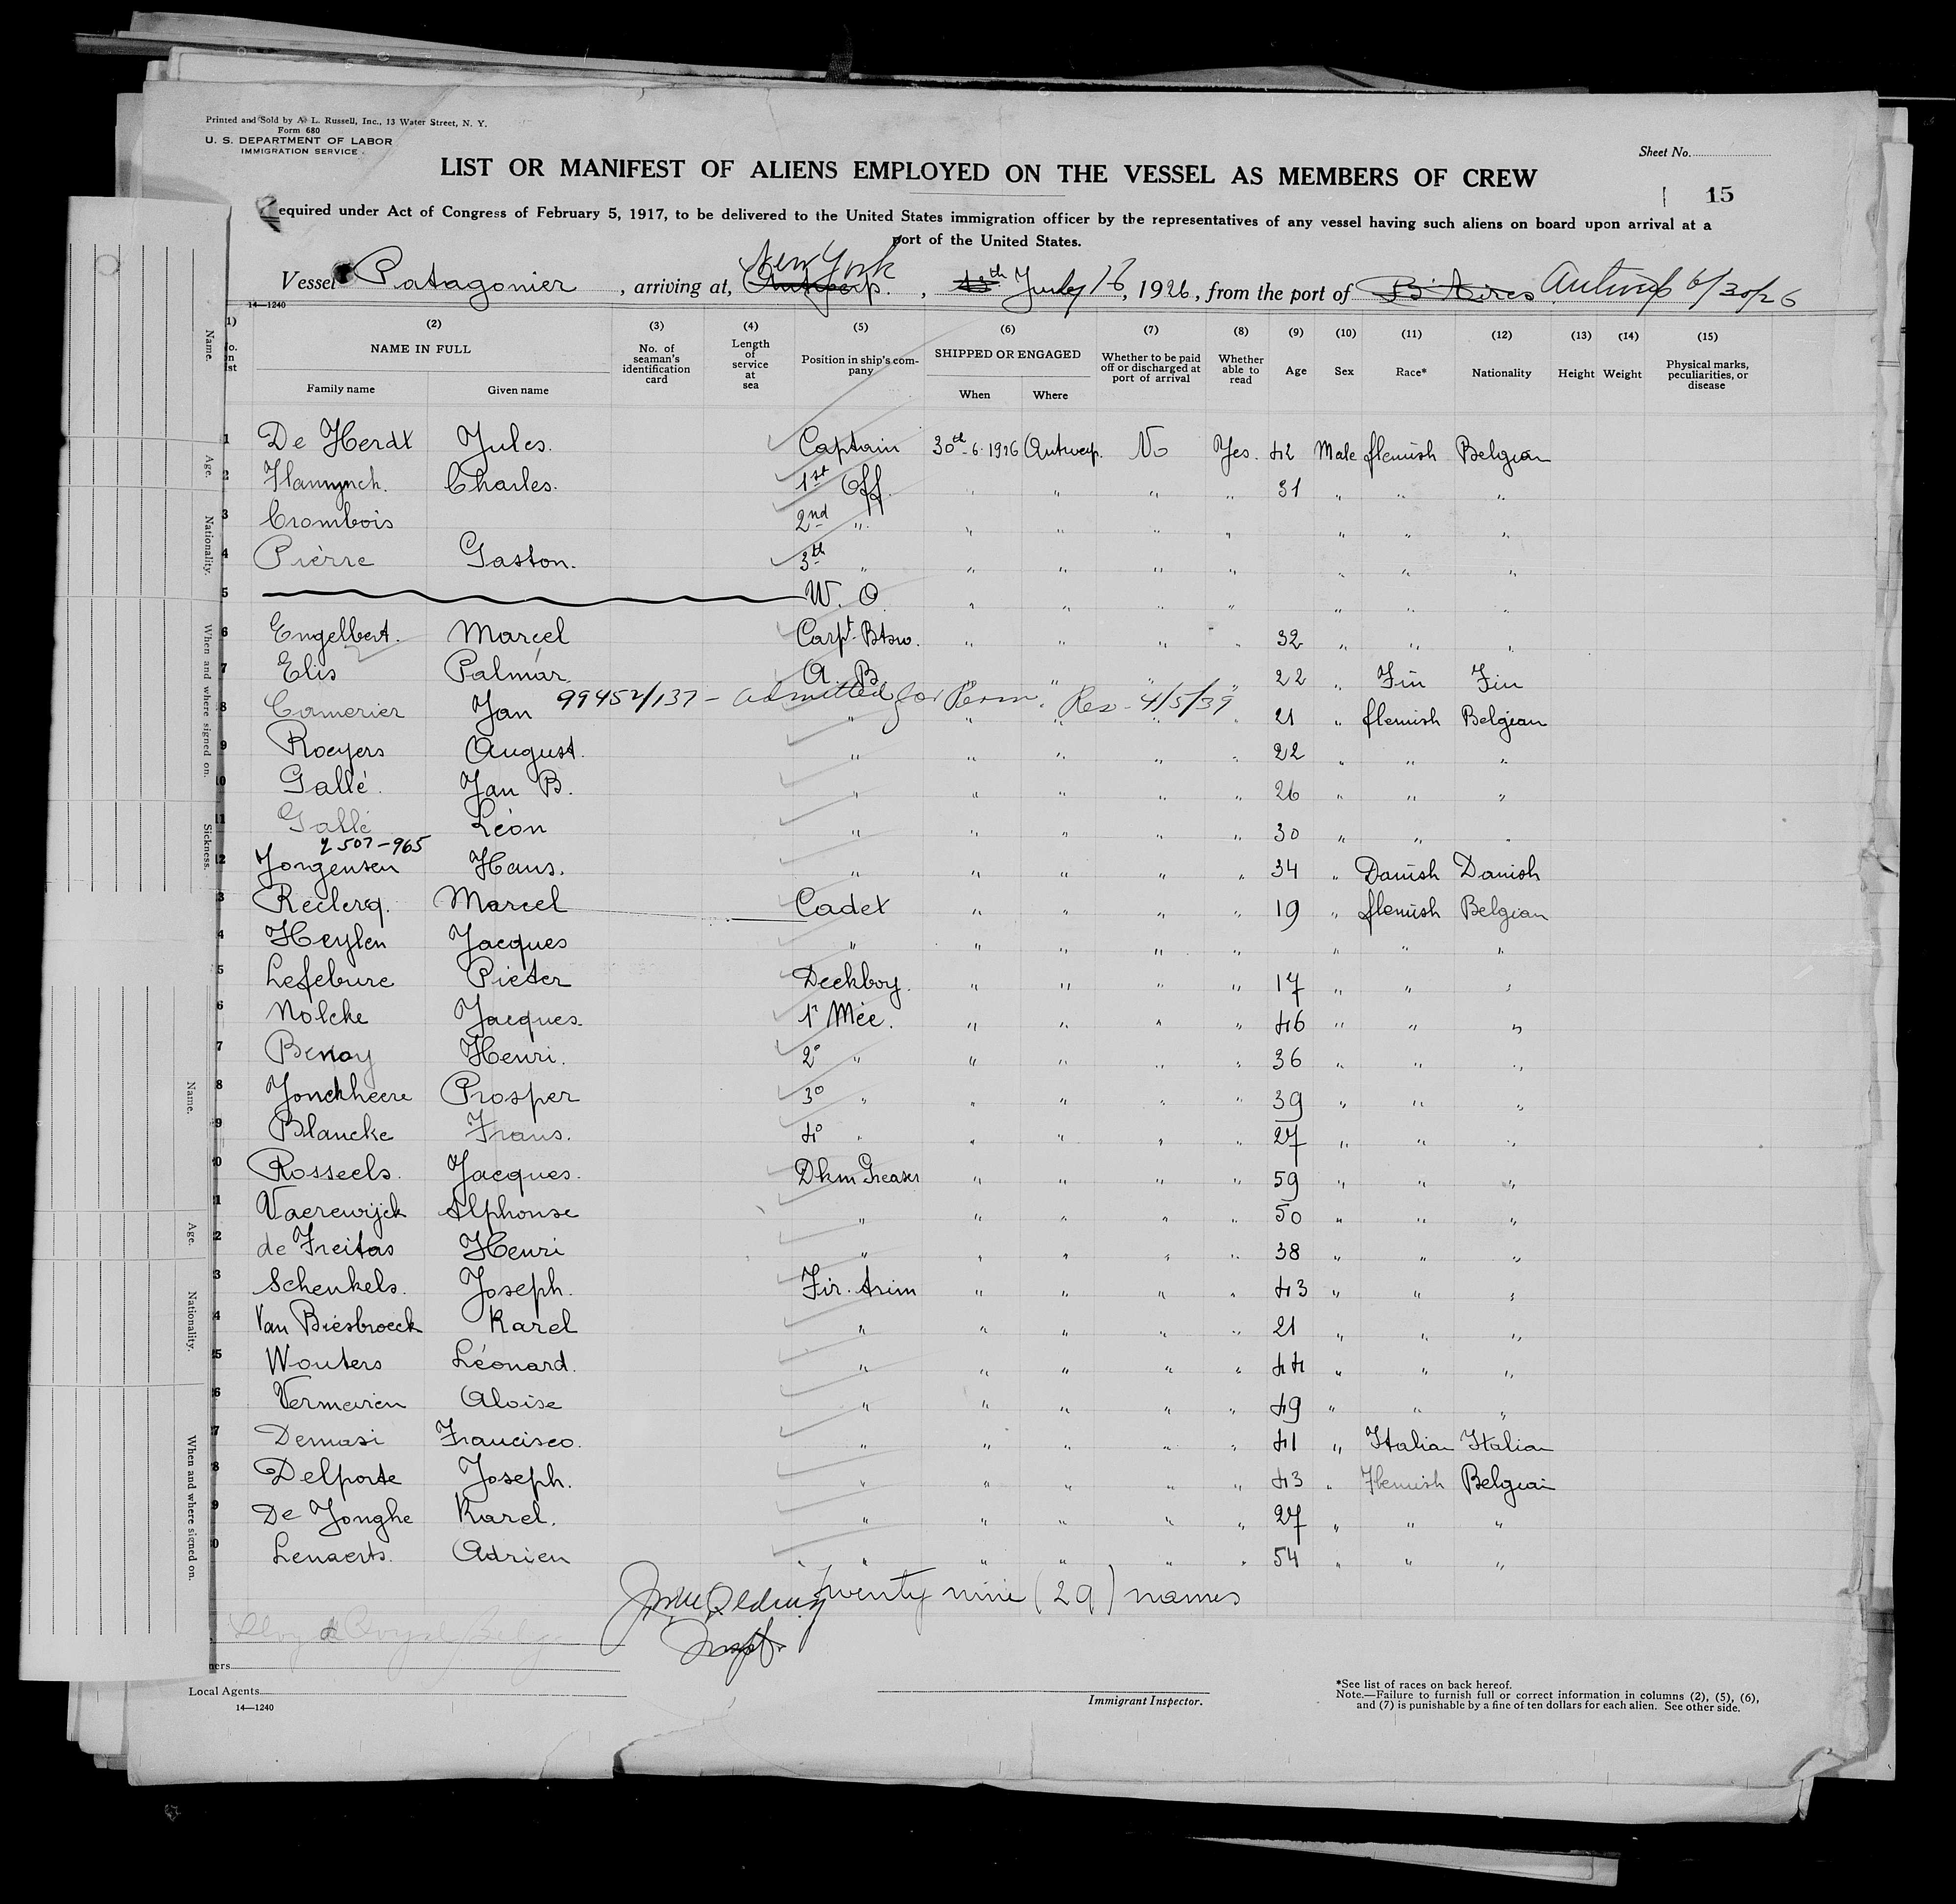 Printed and Sold by A. L. Russell, Inc., 13 Water Street, N. Y.
Form 680
U. S. DEPARTMENT OF LABOR
IMMIGRATION SERVICE
Sheet No.
LIST OR MANIFEST OF ALIENS EMPLOYED ON THE VESSEL AS MEMBERS OF CREW
15
equired under Act of Congress of February 5, 1917, to be delivered to the United States immigration officer by the representatives of any vessel having such aliens on board upon arrival at a
port of the United States.
New York
Vessel Patagonier, arriving at, Antwerp., 13th July 16, 1926, from the port of B. Aires Antwerp 6/30/26
14—1240
(1) (2) (3) (4) (5) (6) (7) (8) (9) (10) (11) (12) (13) (14) (15)
No. on list NAME IN FULL No. of seaman's identification card Length of service at sea Position in ship's company SHIPPED OR ENGAGED Whether to be paid off or discharged at port of arrival Whether able to read Age Sex Race* Nationality Height Weight Physical marks, peculiarities, or disease
Family name Given name When Where
1 De Herdt Jules. Captain 30th-6-1926 Antwerp. No Yes. 42 Male flemish Belgian
2 Charles. 1st Off. " " " " 31 " " "
3 Crombois 2nd " " " " " " " "
4 Pièrre Gaston. 3th " " " " " " " "
5 W. O. " " " " " " "
6 Engelbert. Marcel Carpt Btsw. " " " " 32 " " "
7 Elis Palmár. A. B. " " " " 22 " Fin Fin
99452/137 - admitted for Perm. Res - 4/5/39
8 Camerier Jan " " " " " 21 " flemish Belgian
9 Roeyers August. " " " " " 22 " " "
10 Gallé. Jan B. " " " " " 26 " " "
11 Gallé Léon " " " " " 30 " " "
2507-965
12 Jorgensen Hans. " " " " " 34 " Danish Danish
3 Réclerq. Marcel Cadet " " " " 19 " flemish Belgian
4 Heylen Jacques " " " " " " " "
5 Lefebure Pieter Deckboy. " " " " 17 " " "
6 Nolcke Jacques. 1r Méc. " " " " 46 " " "
7 Benoy Henri. 2° " " " " " 36 " " "
8 Jonckheere Prosper 3° " " " " " 39 " " "
9 Blancke Frans. 4° " " " " " 27 " " "
0 Rosseels. Jacques. Dkm Greaser " " " " 59 " " "
1 Vaerewijck Alphonse " " " " " 50 " " "
2 de Freitas Henri " " " " " 38 " " "
3 Schenkels. Joseph. Fir. trim " " " " 43 " " "
4 Van Biesbroeck Karel " " " " " 21 " " "
5 Wouters Léonard. " " " " " 44 " " "
6 Vermeiren Aloise " " " " " 49 " " "
7 Demasi Francisco. " " " " " 41 " Italian Italian
8 Delporte Joseph. " " " " " 43 " Flemish Belgian
9 De Jonghe Karel. " " " " " 27 " " "
0 Lenaerts. Adrien " " " " " 54 " " "
twenty nine (29) names
Inspt.
Lloyd Royal Belge
ners
Local Agents
14—1240
Immigrant Inspector.
*See list of races on back hereof.
Note.—Failure to furnish full or correct information in columns (2), (5), (6),
and (7) is punishable by a fine of ten dollars for each alien. See other side.
Name.
Age.
Nationality.
When and where signed on.
Sickness.
Name.
Age.
Nationality.
When and where signed on.